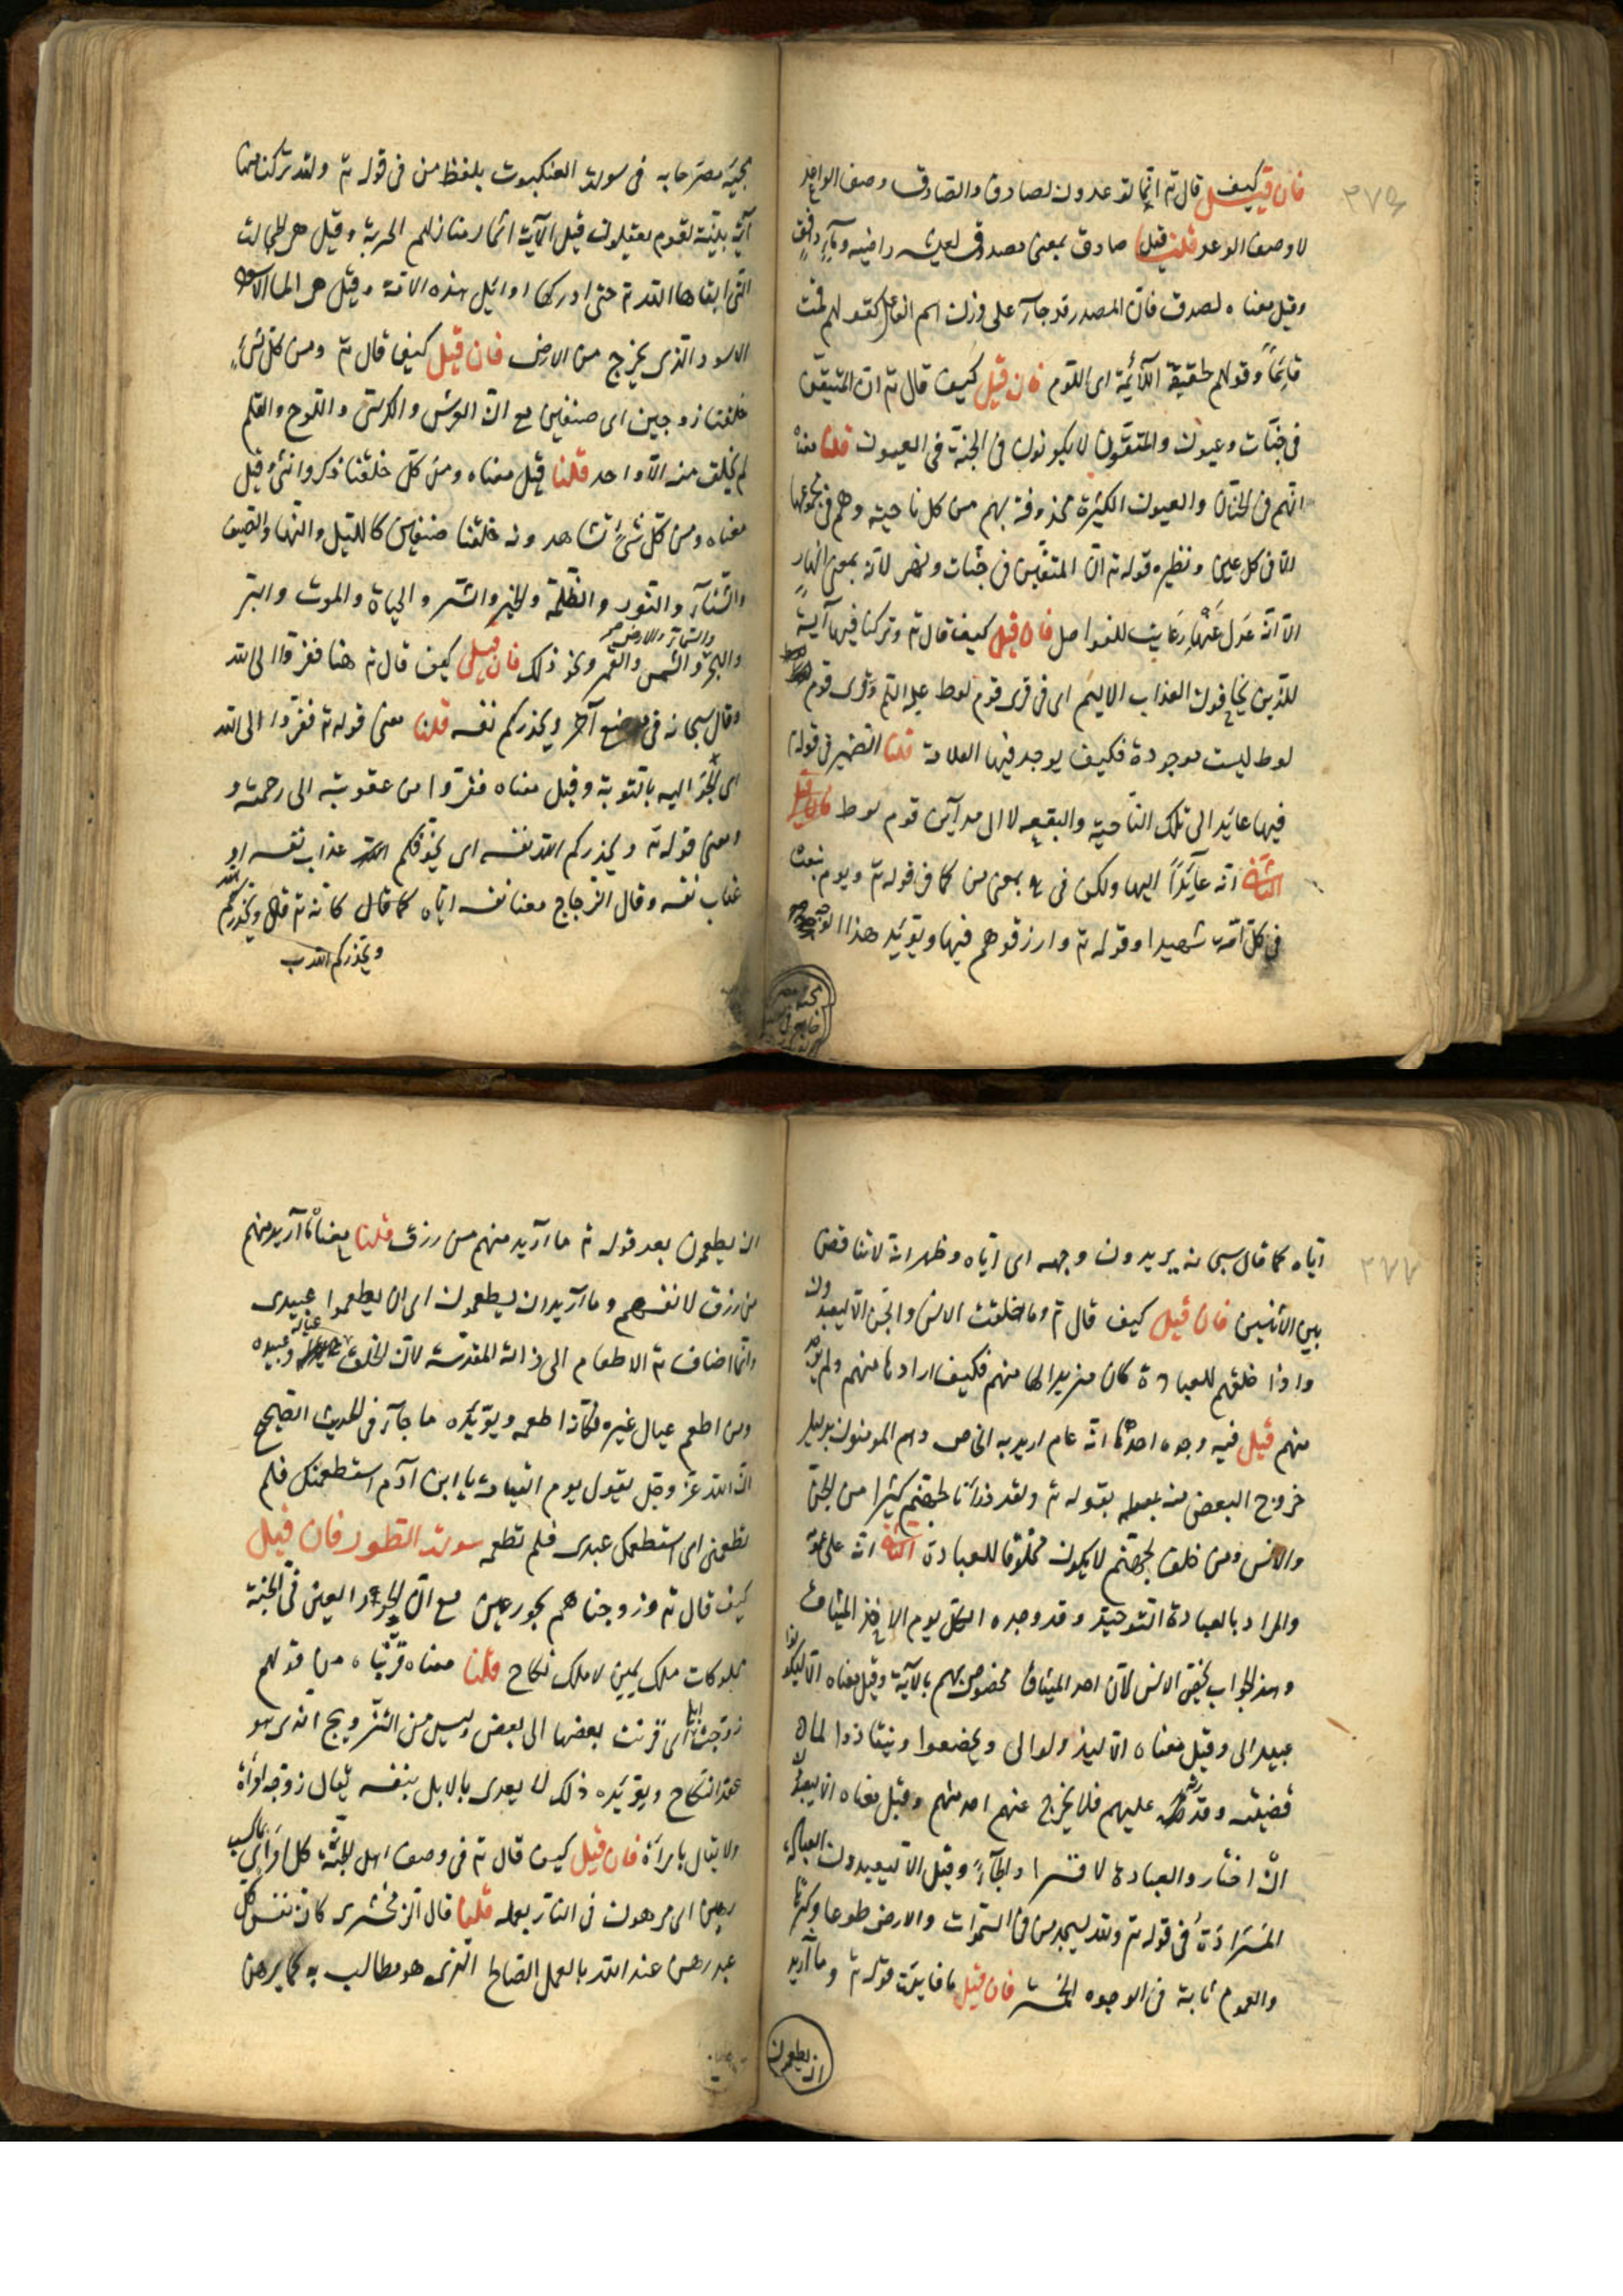 ٢٧٥
فان قيل كيف قال تم انما توعدون لصادق والصادق وصف الواحد
لا وصف الوعد قلنا قيل صادق بمعنى مصدوق كعيشه راضيه وماء دافق
وقيل معناه لصدق فان المصدر قد جاء على وزن اسم الفاعل كقولهم قمت
قائما وقولهم لحقيقة اللائمة اى اللوم فان قيل كيف قال تم ان المتقين
فى جنات وعيون والمتقون لا يكونون فى الجنة فى العيون قلنا معناه
انهم فى الجنان والعيون الكثيرة محذوفة بهم من كل ناحيته وهم فى مجموعها
لا فى كل عين ونظيره قوله تم ان المتقين فى جنات ونهر لانه بمعنى انهار
الا انه عدل عنها رعايت للفواصل فان قيل كيف قال تم وتركنا فيها آية
للذين يخافون العذاب الاليم اى فى قرى قوم لوط عليه السلم وقرى قوم
لوط ليست موجودة فكيف يوجد فيها العلامة قلنا الضمير فى قوله
فيها عائد الى تلك الناحية والبقعه لا الى مدآين قوم لوط
الثانى انه عائدا اليها ولكن فى بمعنى من كما فى قوله تم ويوم نبعث
فى كل امة شهيدا وقوله تم وارزقوهم فيها ويؤيد هذا الوجه
مجيئه مصرحا به فى سورة العنكبوت بلفظ من فى قوله تم ولقد تركنا منها
آية بينة لقوم يعقلون قيل الآية آثار منازلهم الخربة وقيل هى الحجارة
التى ابقاها الله تم حتى ادركها اوائل هذه الامة وقيل هى الماء الاسود
الاسود الذى يخرج من الارض فان قيل كيف قال تم ومن كل شئ
خلقنا زوجين اى صنفين مع ان العرش والكرسى واللوح والقلم
لم يخلق منه الا واحد قلنا قيل معناه ومن كل خلقنا ذكر وانثى وقيل
معناه ومن كل شئ تشاهدونه خلقنا صنفين كالليل والنهار والصيف
والشتاء والنور والظلمة والخير والشر والحياة والموت والبر
والسماء والارض صح
والبحر والشمس والقمر ونحو ذلك فان قيل كيف قال تم هنا ففروا الى الله
وقال سبحانه فى موضع آخر ويحذركم نفسه قلنا معنى قوله تم ففروا الى الله
اى الجؤا اليه بالتوبة وقيل معناه ففروا من عقوبته الى رحمته و
ومعنى قوله تم ويحذركم الله نفسه اى يخوفكم عذاب نفسه او
عقاب نفسه وقال الزجاج معنا نفسه اياه كما قال كانه تم قال ويحذركم الله
ويحذركم الله
٢٧٧
اياه كما قال سبحانه يريدون وجهه اى اياه وظهر انه لا تناقض
بين الآيتين فان قيل كيف قال تم وما خلقت الانس والجن الا ليعبدون
واذا خلقهم للعبادة كان مزيدا لها منهم فكيف ارادها منهم ولم
منهم قيل فيه وجوه احدها انه عام اريد به الخاص وهم المومنون بدليل
خروج البعض منه بقوله تم ولقد ذرأنا لجهنم كثيرا من الجن
والانس ومن خلق لجهنم لا يكون مخلوقا للعبادة الثانى انه على عمومه
والمراد بالعبادة التوحيد وقد وحده الكل يوم الاخذ الميثاق
وهذا الجواب يخص الانس لان اخذ الميثاق مخصوص بهم بالآية وقيل معناه الا ليكونوا
عبيدا لى وقيل معناه الا ليذلوا لى ويخضعوا وينقادوا لما
قضيته وقدرته عليهم فلا يخرج عنهم احد منهم وقيل معناه الا ليعبدون
ان اختاروا العبادة لا قسرا والجاء وقيل الا ليعبدون العبادة
المرادة فى قوله تم ولله يسجد من فى السموات والارض طوعا وكرها
والعموم ثابتة فى الوجوه الخمسة فان قيل ما فايدت قوله تم وما اريد
ان يطعمون
ان يطعمون بعد قوله تم ما اريد منهم من رزق قلنا معناه ما اريد منهم
من رزق لانفسهم وما اريد ان يطعمون اى ان يطعموا عبيدى
وانما اضاف تم الاطعام الى ذاته المقدسة لان الخلق عياله وعبيده
ومن اطعم عيال غيره فكانه اطعمه ويؤيده ما جاء فى الحديث الصحيح
ان الله عز وجل يقول يوم القيامة يا ابن آدم استطعمتك فلم
تطعمنى اى استطعمك عبدى فلم تطعمه سورت الطور فان قيل
كيف قال تم وزوجناهم بحور عين مع ان الحور العين فى الجنة
مملوكات ملك يمين لا ملك نكاح قلنا معناه قرناه من قولهم
زوجت ابلى اى قرنت بعضها الى بعض وليس من التزويج الذى هو
عقد النكاح ويؤيده ذلك لا يعدى بالابل بنفسه يقال زوجه امرأة
ولا يقال بامرأة فان قيل كيف قال تم فى وصف اهل الجنة كل امرئ بما كسب
رهين اى مرهون فى النار بعمله قلنا قال الزمخشرى كان نفس كل
عبد رهن عند الله بالعمل الصالح الذى هو مطالب به كما يرهن